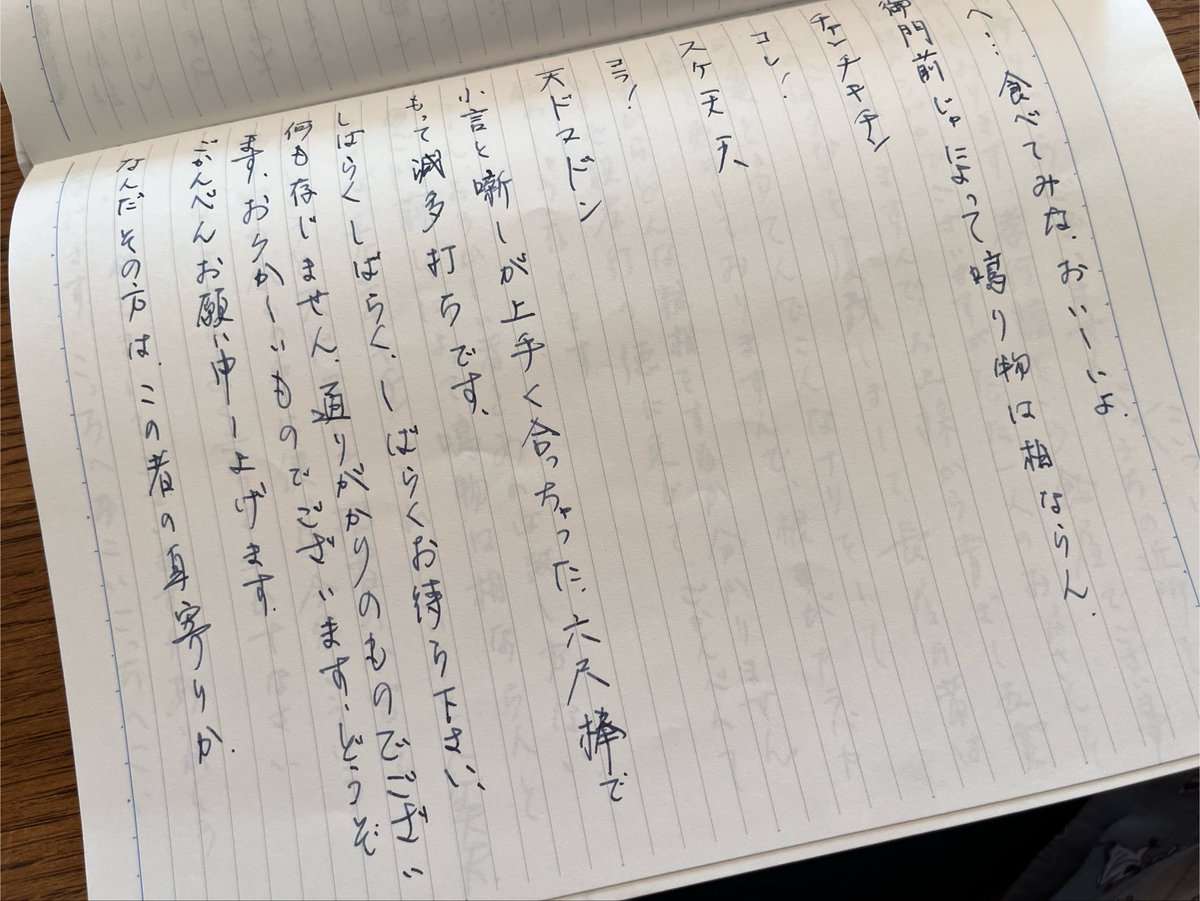 へ… 食べてみな、おいしいよ。
御門前じゃによって鳴り物は相ならん。
チャンチキチン
コレ！
スケ天天
コラ！
天ドスドン
小言と噺しが上手く合っちゃった、六尺棒で
もって滅多打ちです。
しばらくしばらく、しばらくお待ち下さい、
何も存じません、通りがかりのものでござい
ます、おかしいものでございます、どうぞ
ごかんべんお願い申し上げます。
なんだその方は、この者の身寄りか。